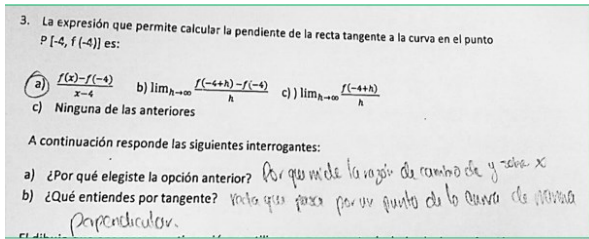 3. La expresión que permite calcular la pendiente de la recta tangente a la curva en el punto
P [-4, f (-4)] es:
a) f(x)-f(-4)/x-4 b) lim h→∞ f(-4+h)-f(-4)/h c) ) lim h→∞ f(-4+h)/h
c) Ninguna de las anteriores
A continuación responde las siguientes interrogantes:
a) ¿Por qué elegiste la opción anterior? Por que mide la razón de cambio de y sobre x
b) ¿Qué entiendes por tangente? que pasa por un punto de la curva de